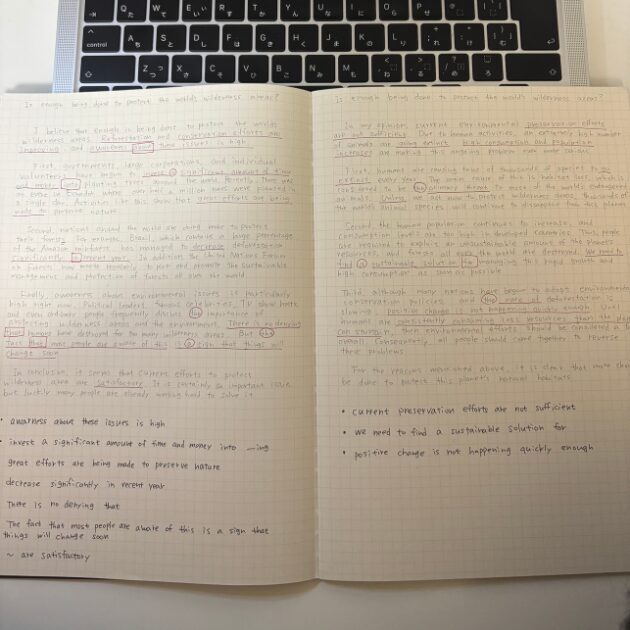 Q た
W て
E い
R す
T か
Y ん
U な
I に
O ら
P せ
control
A ち
S と
D し
F は
G き
H く
J ま
K の
L り
Z つ
X さ
C そ
V ひ
B こ
N み
M も
Is enough being done to protect the world's wilderness areas?
I believe that enough is being done to protect the world's
wilderness areas. Reforestation and conservation efforts are
improving and awareness about these issues is high.
First, governments, large corporations, and individual
volunteers have begun to invest a significant amount of time
and money into planting trees around the world. There was
an event in where over half a million trees were planted in
a single day. Activities like this show that great efforts are being
made to preserve nature.
Second, nations around the world are doing more to protect
their forests. For example, Brazil, which contains a large percentage
of the Amazon rainforest, has managed to decrease deforestation
significantly in recent years. In addition, the United Nations Forum
on Forests now meets regularly to plan and promote the sustainable
management and protection of forests all over the world.
Finally, awareness about environmental issues is particularly
high right now. Political leaders, famous celebrities, TV show hosts
and even ordinary people frequently discuss the importance of
protecting wilderness areas and the environment. There is no denying
that humans have destroyed far too many wilderness areas. But the
fact that most people are aware of this is a sign that things will
change soon.
In conclusion, it seems that current efforts to protect
wilderness areas are satisfactory. It is certainly an important issue,
but luckily many people are already working hard to solve it.
• awarness about these issues is high
• invest a significant amount of time and money into ~ing
great efforts are being made to preserve nature
decrease significantly in recent year
There is no denying that
The fact that most people are aware of this is a sign that
things will change soon
~ are satisfactory
Is enough being done to protect the world's wilderness areas?
In my opinion, current environmental preservation efforts
are not sufficient. Due to human activities, an extremely high number
of animals are going extinct. High consumption and population
increases are making this ongoing problem even more serious.
First, humans are causing tens of thousands of species to go
extinct every year. The main cause of this is habitat loss, which is
considered to be the primary threat to most of the world's endangered
animals. Unless we act now to protect wilderness areas, thousands of
the world's animal species will continue to disappear from this planet.
Second, the human population continues to increase, and
consumption levels are too high in developed countries. Thus, people
are required to exploit an unsustainable amount of the planet's
resources, and forests all over the world are destroyed. We need to
find a sustainable solution for balancing this rapid growth and
high consumption as soon as possible.
Third, although many nations have begun to adopt environmental
conservation policies, and the pace of deforestation is
slowing, positive change is not happening quickly enough. Until
humans are consistently consuming less resources than the planet
can sustain, then environmental efforts should be considered a
overall. Consequently, all people should come together to reverse
these problems.
For the reasons mentioned above, it is clear that more
be done to protect this planet's natural habitats.
• current preservation efforts are not sufficient
• we need to find a sustainable solution for
• positive change is not happening quickly enough